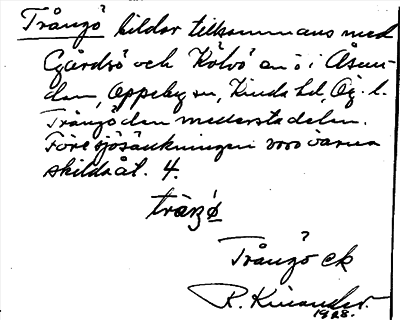 Trångö bildar tillsammans med
Gjärdsö och Kölvö en ö i Åsun-
den, Oppeby sn, Kinda hd, Ög. l.
Trångö den mellersta delen.
Före sjösänkningen voro öarna
skilda åt. 4.
tràŋö
Trångö ek
R. Kinander.
1928.